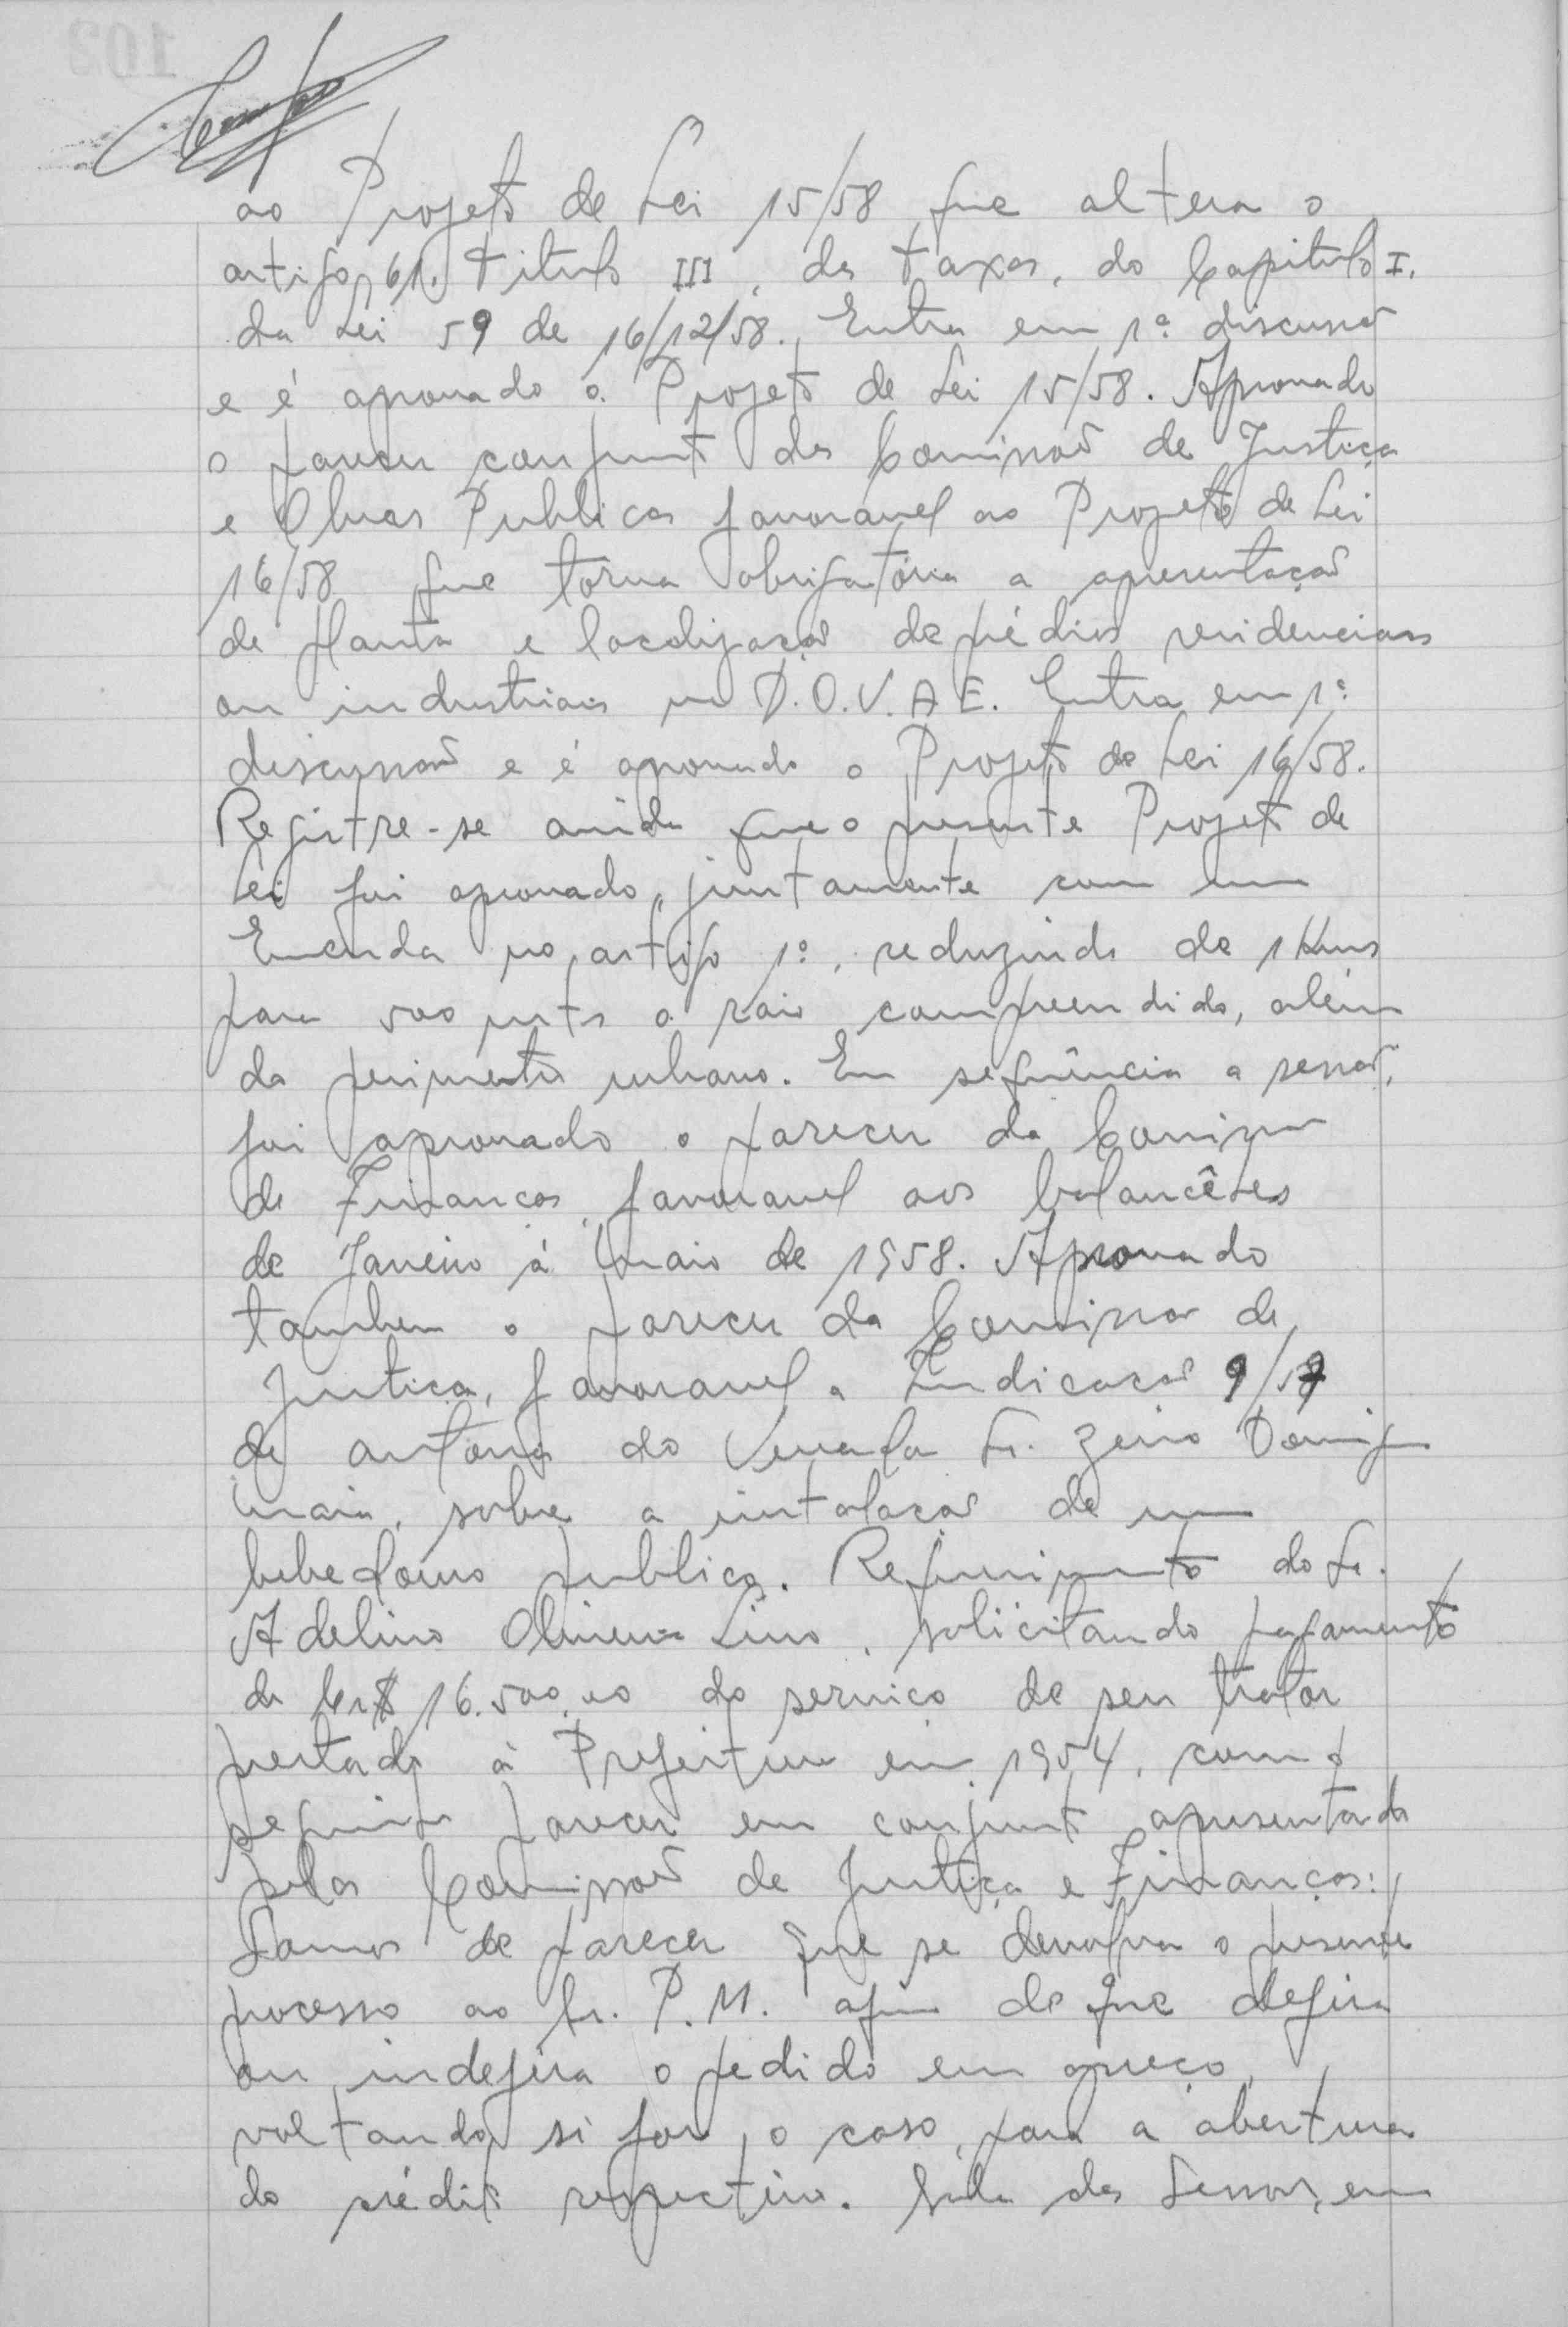 ao Projeto de Lei 15/58 que altera o
artigo 61. Titulo III, das taxas, do Capitulo I.
da Lei 59 de 16/12/58. Entra em 1ª discussão
e é aprovado o Projeto de Lei 15/58. Aprovado
o parecer conjunto das Comissão de Justiça
e Obras Publicas favoravel ao Projeto de Lei
16/58 que torna obrigatória a apresentação
de planta e localização de prédios residenciais
ou industriais na D.O.V.A E. Entra em 1ª
discussão e é aprovado o Projeto de Lei 16/58.
Registre-se ainda que o presente Projeto de
Lei foi aprovado, juntamente com um
Emenda no artigo 1º, reduzindo de 1 Kms
para 500 mts o raio compreendido, além
do perimetro urbano. Em sequência a sessão,
foi aprovado o parecer da Comissão
de Finanças, favoravel aos balancêtes
de Janeiro á maio de 1958. Aprovado
tambem o parecer da Comissão de
Justiça, favoravel a Indicação 9/
de autoria do Vereador Sr. Zeno Domingos
Maia, sobre a instalação de um
bebedouro publico. Requerimento do Sr.
Adelino Oliveira Lino, solicitando pagamento
de Cr$ 16.500,00 do serviço de seu trator
prestado à Prefeitura em 1954, com o
seguinte parecer em conjunto apresentado
pelas Comissão de Justiça e Finanças:
Somos de parecer que se devolva o presente
processo ao Sr. P.M. afim de que defira
ou indefira o pedido em apreço,
voltando si for o caso, para a abertura
do crédito respectivo. Sala das Sessões, em